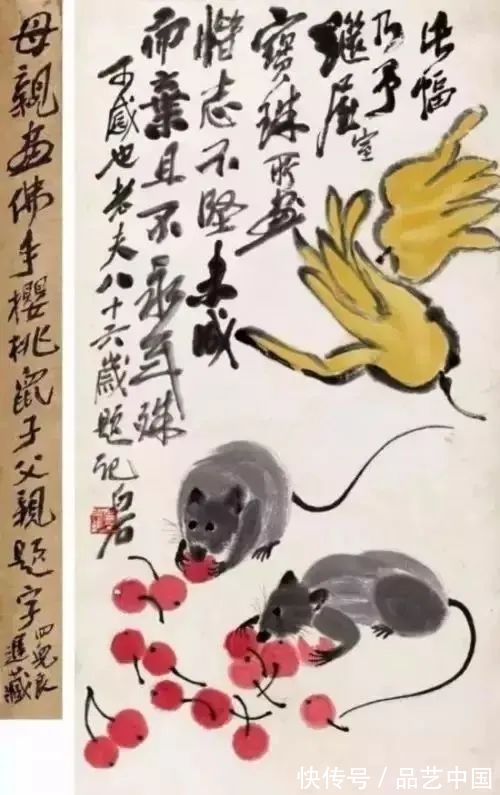 此幅
乃予室
繼
寶珠所畫
惜志不堅未成
而棄且不永年殊
可感也老夫八十六歲題記白石
母親畫佛手櫻桃鼠子父親題字
四兒良
遲藏
快传号/品艺中国